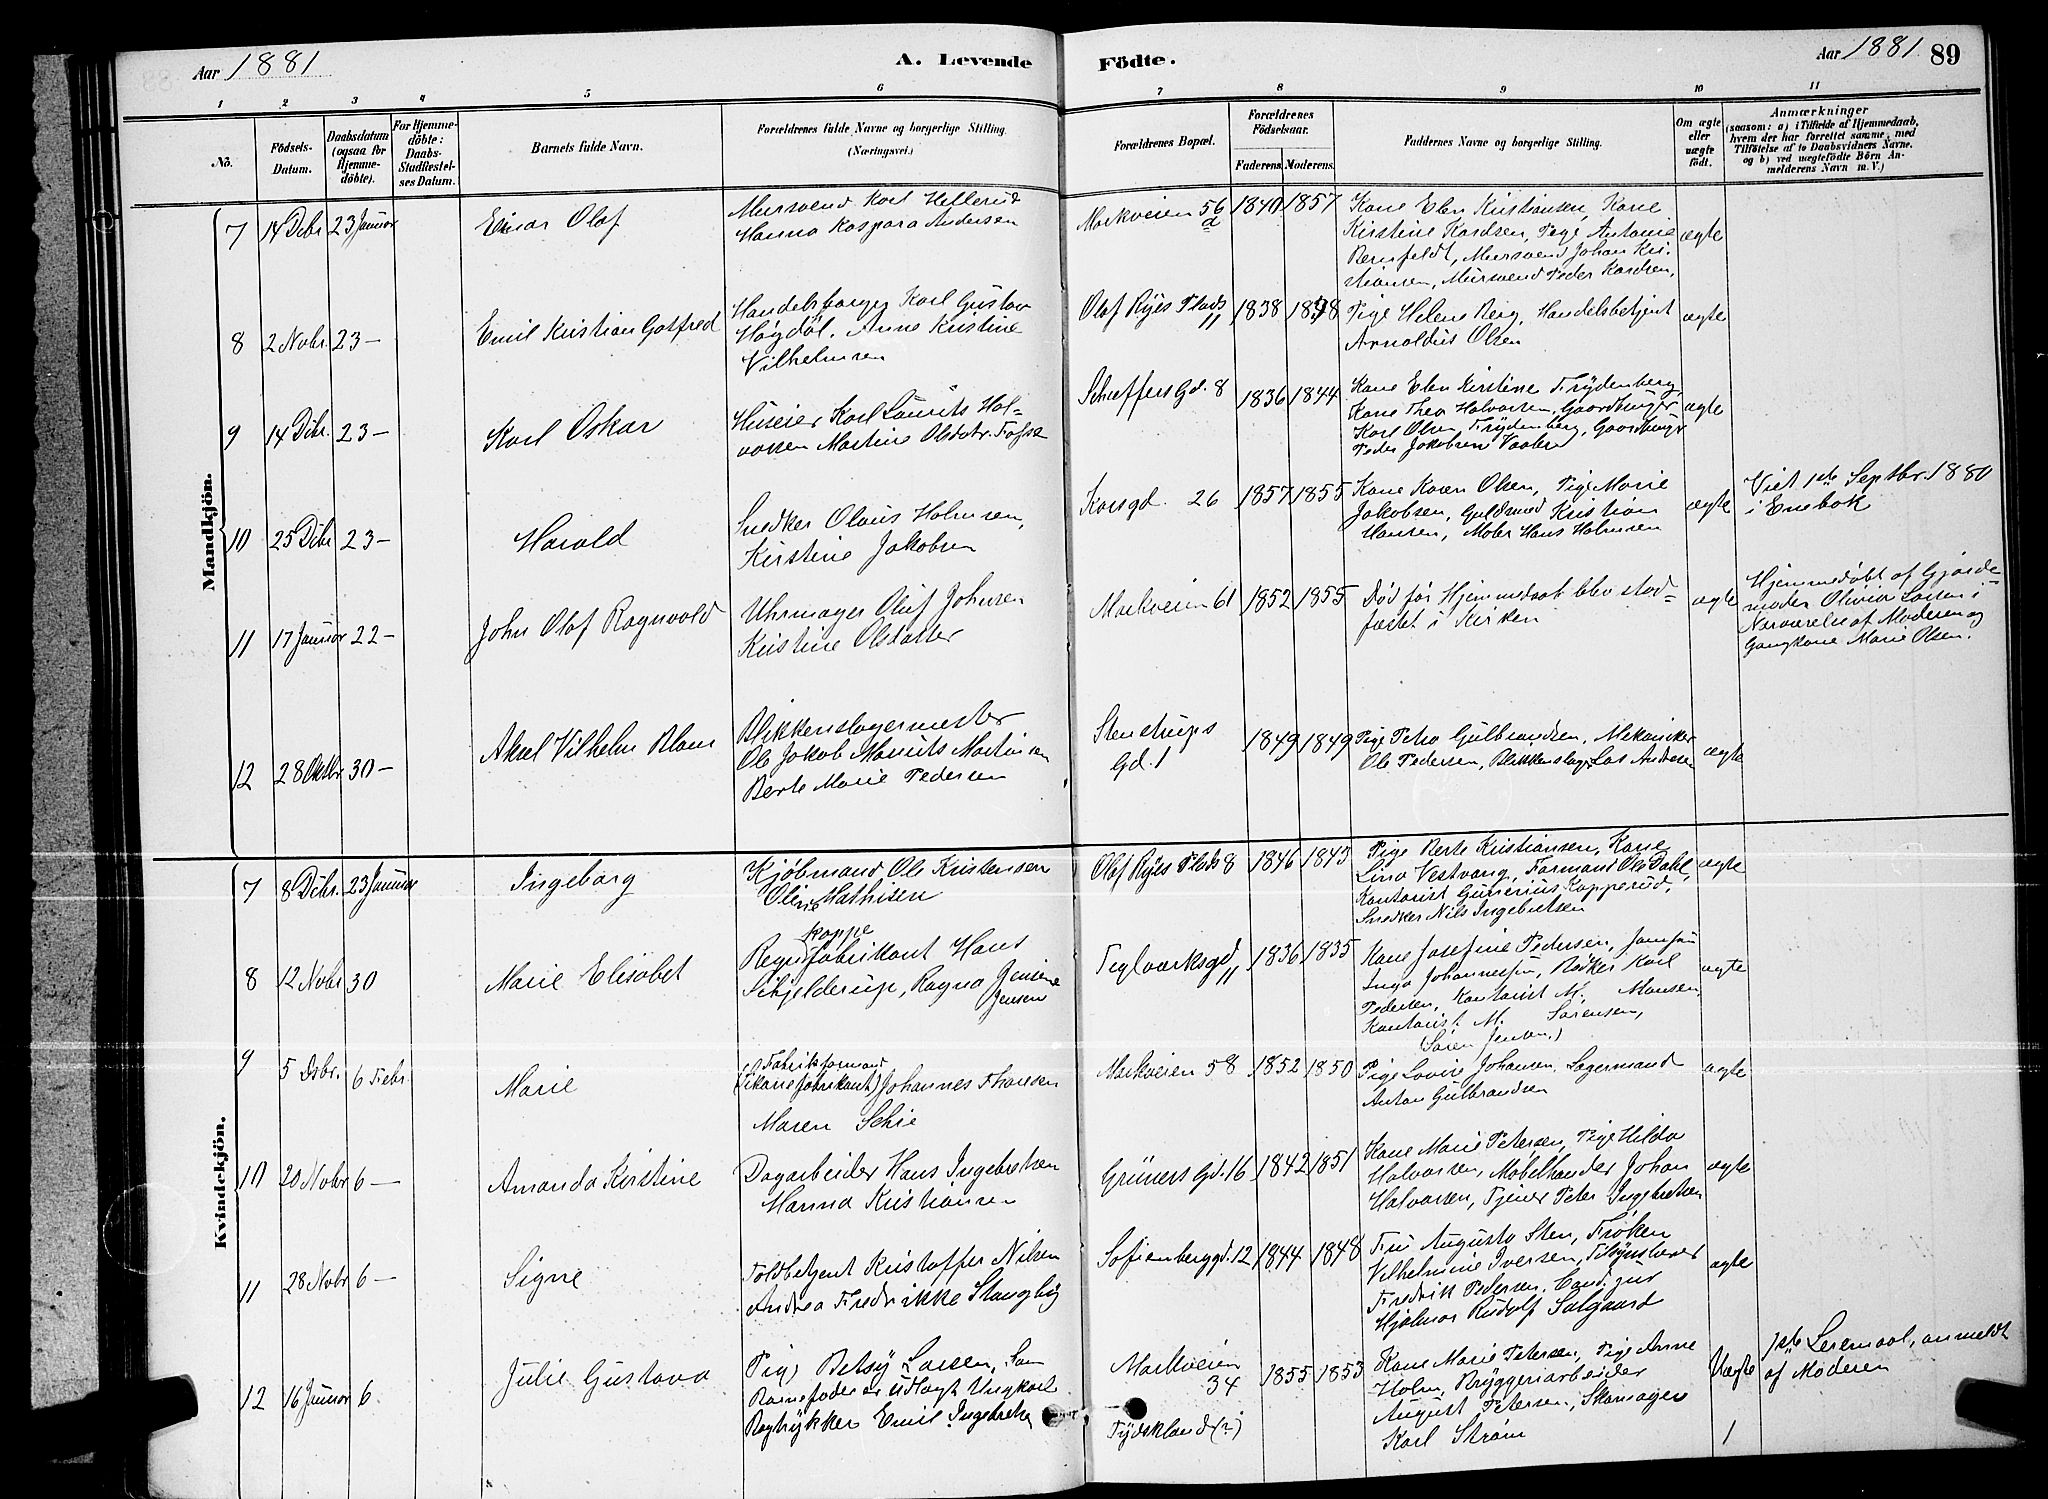 Aar 1881
A. Levende
Födte.
Aar 1881. 89
1 2 3 4 5 6 7 8 9 10 11
No.
Födsels-Datum.
Daabsdatum (ogsaa for Hjemmedöbte).
For Hjemmedöbte: Daabs-Stadfæstelses Datum.
Barnets fulde Navn.
Forældrenes fulde Navne og borgerlige Stilling.
(Næringsvei.)
Forældrenes Bopæl.
Forældrenes Födselsaar.
Faderens. Moderens.
Faddernes Navne og borgerlige Stilling.
Om ægte eller uægte födt.
Anmærkninger
(saasom: a) i Tilfælde af Hjemmedaab,
hvem der har forrettet samme, med
Tilföielse af to Daabsvidners Navne,
og b) ved uægtefödte Börn An-
melderens Navn m. V.)
Mandkjön.
7 14 Dcbr. 23 Januar
Einar Olaf
Mursvend Karl Hellerud
Hanna Kaspara Andersen
Markveien 56 d
1840 1857
Kone Elen Kristiansen, Kone
Kirstine Kardsen, Pige Antonie
Bernfeldt, Mursvend Johan Kri-
stiansen, Mursvend Peder Kardsen,
ægte
8 2 Nobr. 23 —
Emil Kristian Gotfred
Handelsborger Karl Gustav
Høgdöl. Anne Kristine
Vilhelmsen
Olaf Ryes Plads 11
1838 1848
Pige Helene Berg, Handelsbetjent
Arnoldus Olsen
ægte
9 14 Dcbr. 23 —
Karl Oskar
Huseier Karl Laurits Hal-
vorsen Martine Olsdatr.
Schæffers Gd. 8
1836 1844
Kone Elen Kirstine Frydenberg,
Kone Thea Halvorsen, Gaardbruger
Karl Olsen Frydenberg, Gaardbruger
Peder Jakobsen Vaaler
ægte
10 25 Dcbr 23 —
Harald
Snedker Olaus Holmsen,
Kirstine Jakobsen
Korsgd. 26
1857 1855
Kone Karen Olsen, Pige Marie
Jakobsen, Guldsmed Kristian
Hansen, Maler Hans Holmsen
ægte
Viet 1ste Septbr. 1880
i Enebak
11 17 Januar 22 —
John Olaf Ragnvald
Uhrmager Oluf Johnsen
Kristine Olsdatter
Markveien 61
1852 1855
Død før Hjemmedaab blev stad-
fæstet i Kirken
ægte
Hjemmedøbt af Gjorde-
moder Olivia Larsen i
Nærværelse af Moderen og
Gangkone Marie Olsen.
12 28 Oktbr 30 —
Aksel Vilhelm Blom
Blikkenslagermester
Ole Jakob Marits Martinsen
Berte Marie Pedersen
Stenstrups
Gd. 1
1849 1849
Pige Petra Gulbrandsen, Mekaniker
Ole Pedersen, Blikkenslag. Lars Andersen
ægte
Kvindekjön.
7 8 Dcbr. 23 Januar
Ingeborg
Kjøbmand Ole Kristensen
Oline Mathisen
Olaf Ryes Plads 8
1846 1843
Pige Berte Kristiansen, Kone
Lina Vestvang, Formand Ole Dahl,
Kontorist Gunerius Kopperud,
Snedker Nils Ingebretsen
ægte
8 12 Nobr 30
Marie Elisabet
Regnkappefabrikant Hans
Schjelderup, Ragna Jensine
Jensen
Teglværksgd 11
1836 1835
Kone Josefine Pedersen, Jomfru
Inga Johannessen, Bøkker Karl
Pedersen, Kontorist M. Monsen,
Kontorist M. Sørensen,
(Søren Jensen.)
ægte
9 5 Dcbr. 6 Febr.
Marie
Fabrikformand
Johannes Thoresen
Maren Schie
Markveien 58
1852 1850
Pige Lovise Johansen, Lagermand
Anton Gulbrandsen
ægte
10 20 Nobr 6 —
Amanda Kirstine
Dagarbeider Hans Ingebretsen
Hanna Kristiansen
Grüners Gd. 16
1842 1851
Kone Marie Petersen, Pige Hilda
Halvorsen, Møbelhander Johan
Halvorsen, Tjener Peter Ingebretsen
ægte
11 28 Nobr 6 —
Signe
Toldbetjent Kristoffer Nilsen
Andrea Fredrikke Stangby
Sofienberggd. 12
1844 1848
Fru Augusta Sten, Frøken
Vilhelmine Iversen,
Fredrik Pedersen, Cand. jur
Hjalmar Rudolf Salgaard
ægte
12 16 Januar 6.
Julie Gustava
Pige Betsy Larsen, Som
Barnefader er udlagt Ungkarl
Bogtrykker Emil Ingebretsen
Markveien
34
Tydskland (?)
1855 1853
Kone Marie Petersen, Pige Anne
Holm, Bryggeriarbeider
August Petersen, Skomager
Karl Strøm
Uægte
1
1ste Leiermaal, anmeldt
af Moderen